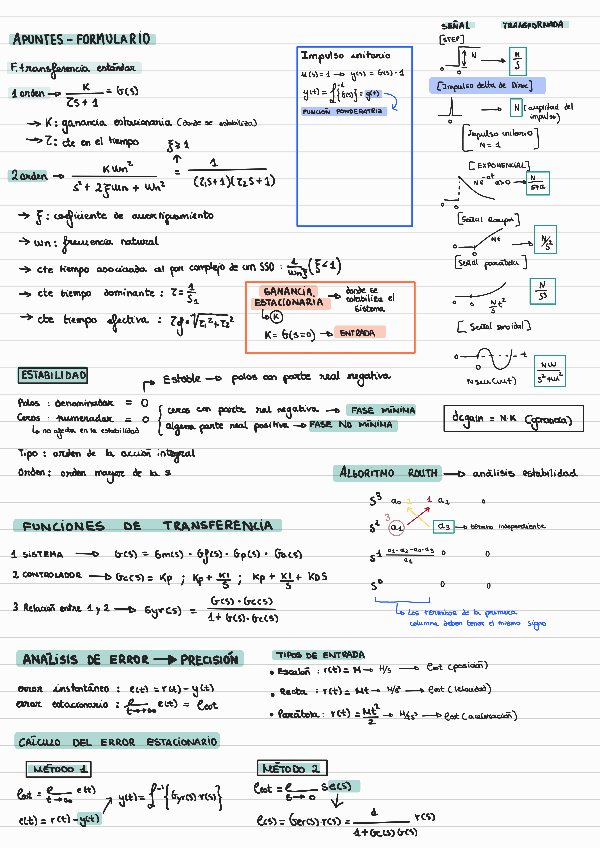 APUNTES - FORMULARIO
F. transferencia estándar
1 orden → K / (τs + 1) = G(s)
→ K: ganancia estacionaria (donde se estabiliza)
→ τ: cte en el tiempo
ξ ≥ 1
2 orden → K ωn² / (s² + 2ξωn + ωn²) = 1 / ((τ1s+1)(τ2s+1))
→ ξ: coeficiente de amortiguamiento
→ ωn: frecuencia natural
→ cte tiempo asociada al par complejo de un SSO: 1/(ωnξ) (ξ<1)
→ cte tiempo dominante: τ = 1/s1
→ cte tiempo efectiva: τef = √(τ1² + τ2²)
Impulso unitario
u(s) = 1 → y(s) = G(s)·1
y(t) = ℒ⁻¹{G(s)} = g(t)
FUNCIÓN PONDERATRIZ
GANANCIA ESTACIONARIA → donde se estabiliza el sistema
↳ K
K = G(s=0) → ENTRADA
SEÑAL TRANSFORMADA
[STEP]
0 N → N/s
[Impulso delta de Dirac]
0 → N (amplitud del impulso)
[Impulso unitario N = 1]
[EXPONENCIAL]
0 0 Ne^-at a>0 → N/(s+a)
[Señal Rampa]
0 0 Nt → N/s²
[Señal parábola]
0 N/2 t² N/s³
[Señal senoidal]
0 0 t N sen(ωt) Nω/(s²+ω²)
dcgain = N·K (ganancia)
ESTABILIDAD
Estable → polos con parte real negativa
Polos: denominador = 0
Ceros: numerador = 0
↳ no afectan en la estabilidad
ceros con parte real negativa → FASE MÍNIMA
alguna parte real positiva → FASE NO MÍNIMA
Tipo: orden de la acción integral
Orden: orden mayor de la s
ALGORITMO ROUTH → análisis estabilidad
s³ a0 2 1 a2 0
s² 3 a1 a3 → término independiente
s¹ (a1·a2-a0·a3)/a1 0 0
s⁰ 0 0
↳ Los términos de la primera
columna deben tener el mismo signo
FUNCIONES DE TRANSFERENCIA
1 SISTEMA → G(s) = Gm(s) · Gf(s) · Gp(s) · Ga(s)
2 CONTROLADOR → Gc(s) = Kp ; Kp + KI/s ; Kp + KI/s + KDS
3 Relación entre 1 y 2 → Gyr(s) = G(s)·Gc(s) / (1 + G(s)·Gc(s))
ANÁLISIS DE ERROR → PRECISIÓN
error instantáneo: e(t) = r(t) - y(t)
error estacionario: ℓ t→+∞ e(t) = eest
TIPOS DE ENTRADA
• Escalón: r(t) = M → M/s → eest (posición)
• Recta: r(t) = Mt → M/s² → eest (velocidad)
• Parábola: r(t) = Mt²/2 → M/s³ → eest (aceleración)
CÁLCULO DEL ERROR ESTACIONARIO
MÉTODO 1
eest = ℓ t→∞ e(t)
e(t) = r(t) - y(t)
y(t) = ℒ⁻¹{Gyr(s)·r(s)}
MÉTODO 2
eest = ℓ s→0 s e(s)
e(s) = Ger(s)·r(s) = 1 / (1+Gc(s)G(s)) r(s)